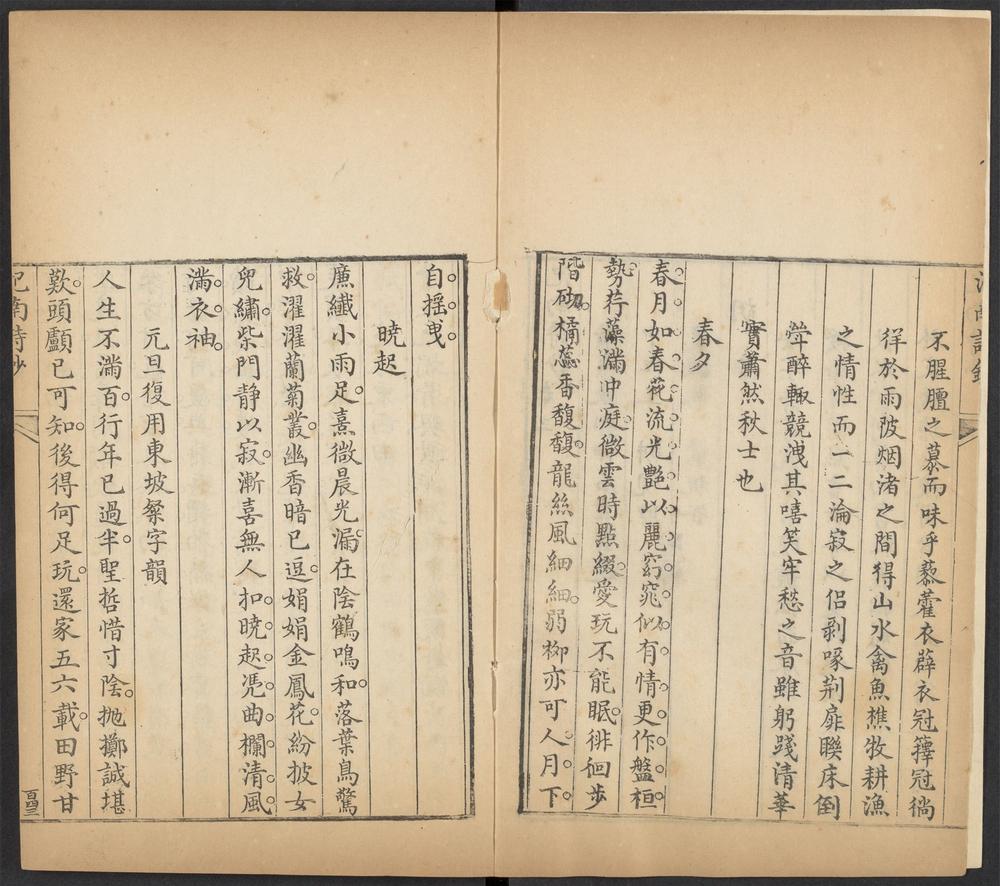 不腥膻之慕而味乎藜藿衣薜衣冠籜冠徜
徉於雨陂烟渚之間得山水禽魚樵牧耕漁
之情性而一二淪寂之侶剥啄荆扉聮床倒
犖醉輙競洩其嘻笑牢愁之音雖躬踐清華
實蕭然秋士也
春夕
春月如春花流光艷以麗窈窕似有情更作盤桓
勢荇藻滿中庭微雲時點綴愛玩不能眠徘徊步
階砌橘蕊香馥馥龍絲風細細弱栁亦可人月下
自揺曳
曉起
廉纖小雨足熹微晨光漏在陰鶴鳴和落葉鳥驚
救濯濯蘭菊叢幽香暗已逗娟娟金鳳花紛披女
兒繡柴門静以寂漸喜無人扣曉起凭曲欄清風
滿衣袖
元旦復用東坡粲字韻
人生不滿百行年已過半聖哲惜寸陰抛擲誠堪
歎頭顱已可知後得何足玩還家五六載田野甘